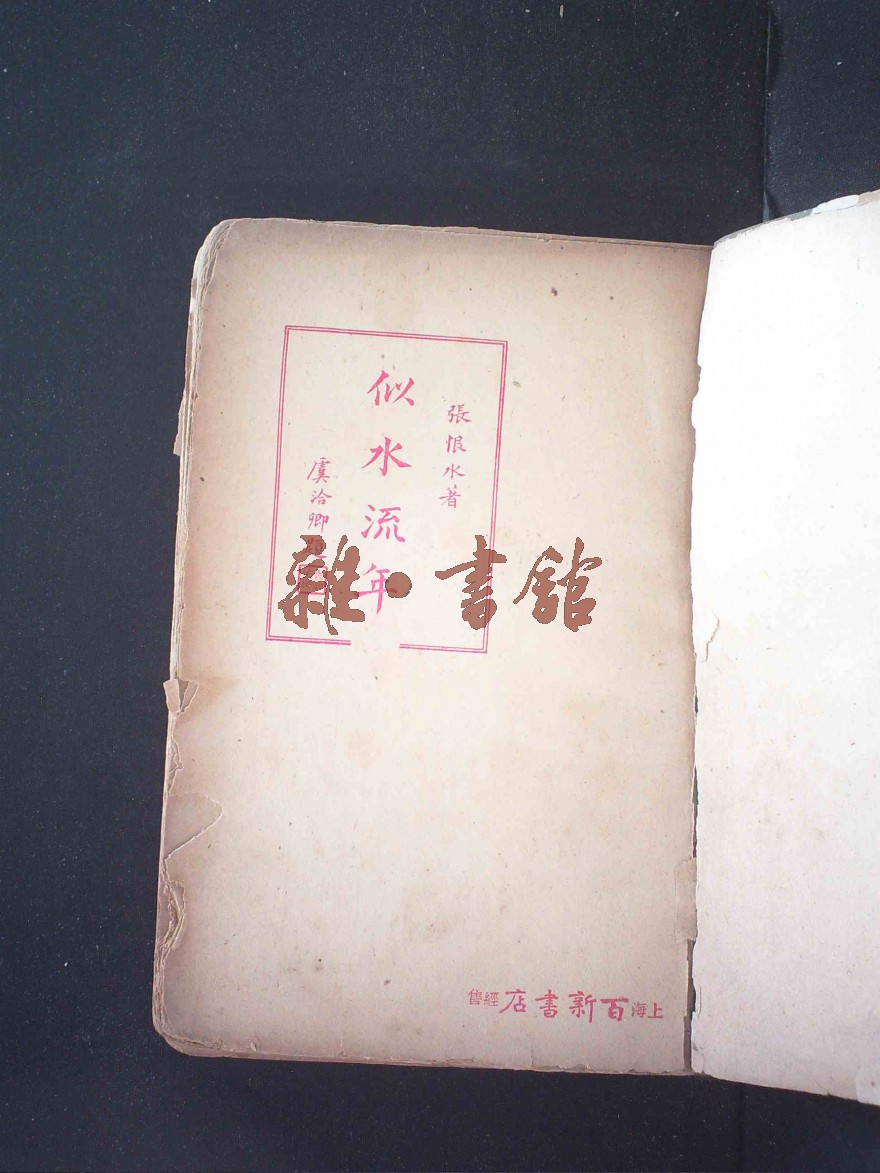 張恨水著
似水流年
虞洽卿題
雜·書館
上海百新書店經售